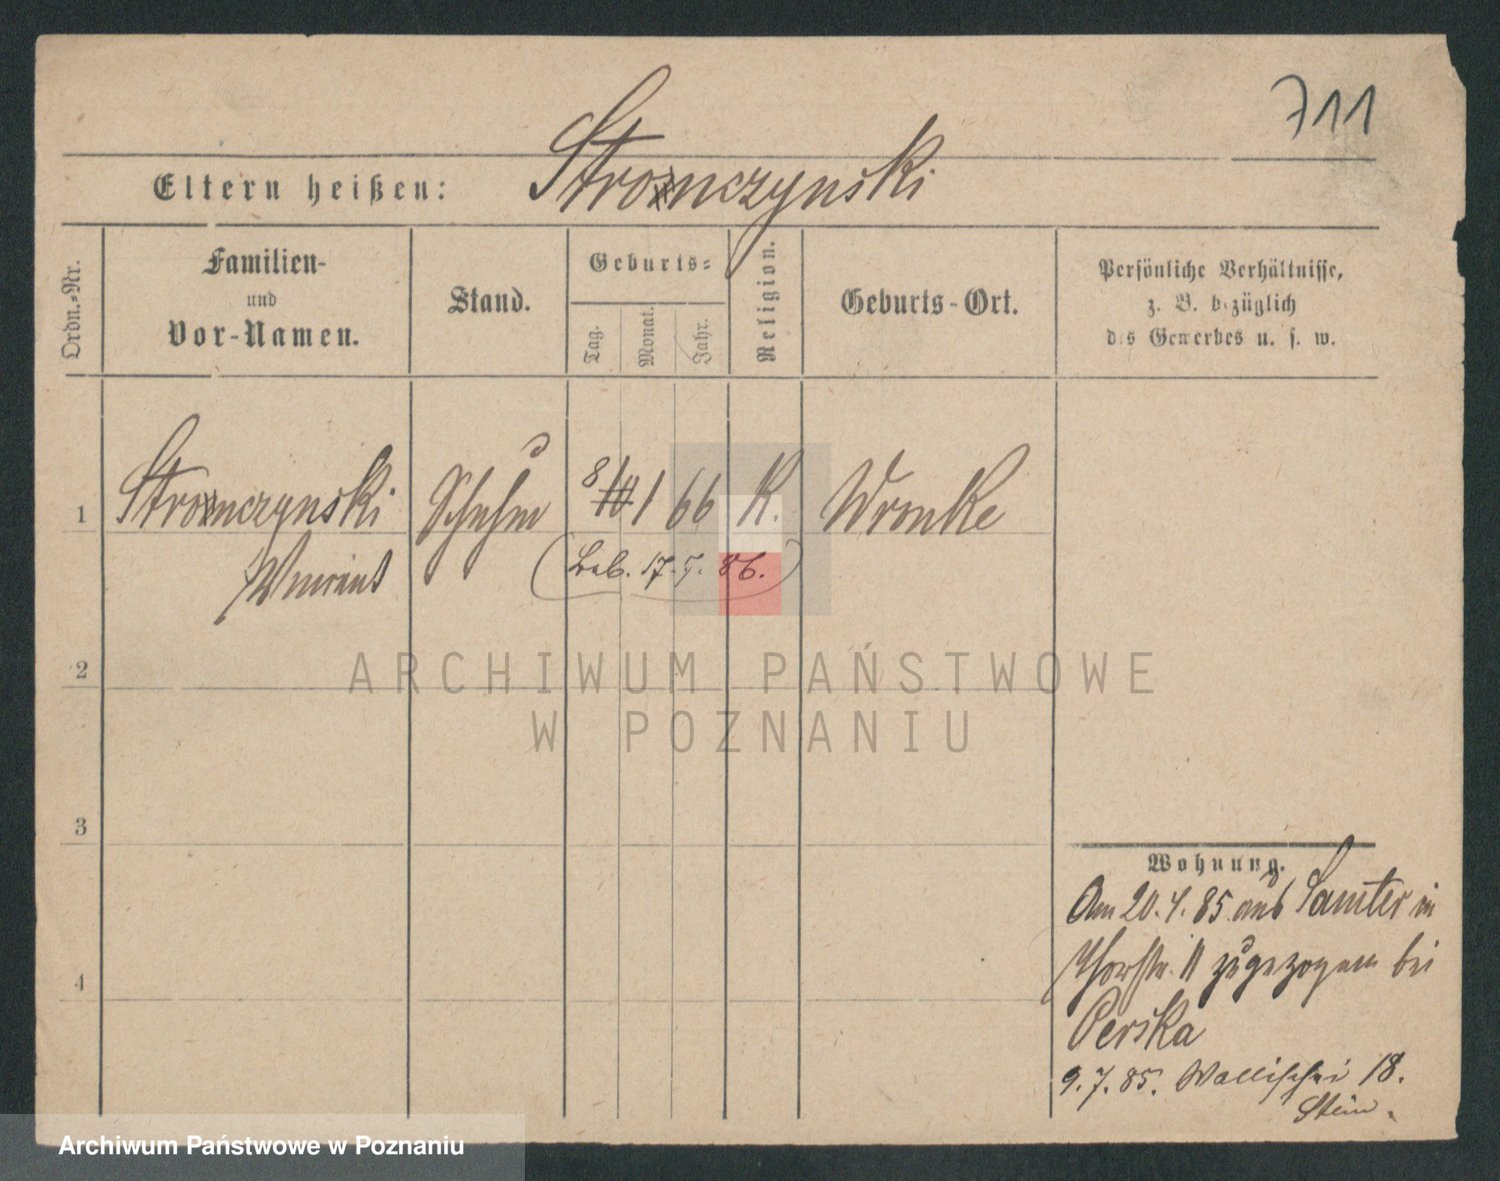 711
Eltern heißen: Stronczynski
Ordn.-Nr.
Familien-
und
Vor-Namen.
Stand.
Geburts-
Tag.
Monat.
Jahr.
Religion.
Geburts-Ort.
Persönliche Verhältnisse,
z. B. bezüglich
des Gewerbes u. s. w.
1 Stronczynski Schuhm 8/ 1 66 K. Wronke
17. 5. 86.
2
3
4
Wohnung.
Am 20. 4. 85 aus Samter in
11 zugezogen bei
Perska
9. 7. 85. Wallischei 18.
Stein.
ARCHIWUM PAŃSTWOWE
W POZNANIU
Archiwum Państwowe w Poznaniu